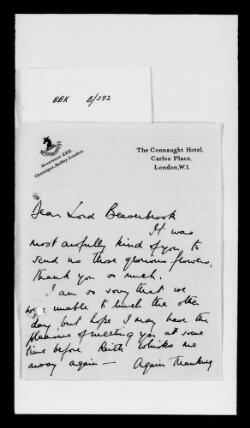 BBK B/292
Grosvenor 2211.
The Connaught Hotel,
Carlos Place,
London, W.1.
Dear Lord Beaverbrook
It was
most awfully kind of you to
send us those glorious flowers,
thank you so much.
I am so sorry that we
were unable to lunch the other
day, but hope I may have the
pleasure of meeting you at some
time before Keith whisks me
away again — Again thanking